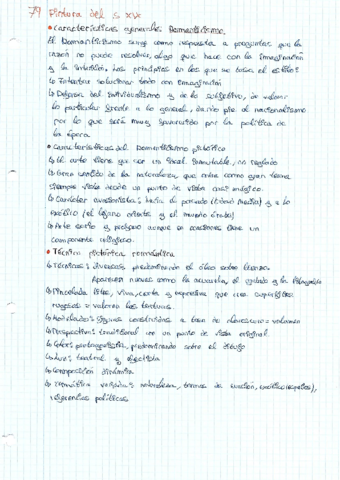 79 Pintura del s. XIX
• Características generales: Romanticismo.
El Romanticismo surge como respuesta a preguntas que la
razón no puede resolver, algo que hace con la imaginación
y la intuición. Los principios en los que se basa el estilo:
↳ Intentar solucionar todo con imaginación
↳ Defensa del individualismo y de lo subjetivo, de valorar
lo particular frente a lo general, dando pie al nacionalismo
por lo que será muy favorecido por la política de
la época.
• Características del Romanticismo pictórico
↳ El arte tiene que ser un ideal inmutable, no reglado
↳ Gran sentido de la naturaleza que entra como gran tema
siempre vista desde un punto de vista casi mágico.
↳ Carácter evasionista: hacia el pasado (Edad media) y a lo
exótico (el lejano oriente y el mundo árabe)
↳ Arte serio y profano aunque en ocasiones tiene un
componente religioso.
• Técnica pictórica romántica
↳ Técnicas: diversas predominando el óleo sobre lienzo.
Aparecen nuevas como la acuarela, el grabado y la litografía
↳ Pincelada libre, viva, corta y expresiva que crea superficies
rugosas = valora las texturas.
↳ Modelado: figuras construidas a base de claroscuro = volumen
↳ Perspectiva: tradicional con un punto de vista original.
↳ Color: protagonista, predominando sobre el dibujo
↳ Luz: teatral y efectista
↳ Composición dinámica
↳ Temática variada: naturaleza, temas de evasión, exóticos
alegorías políticas